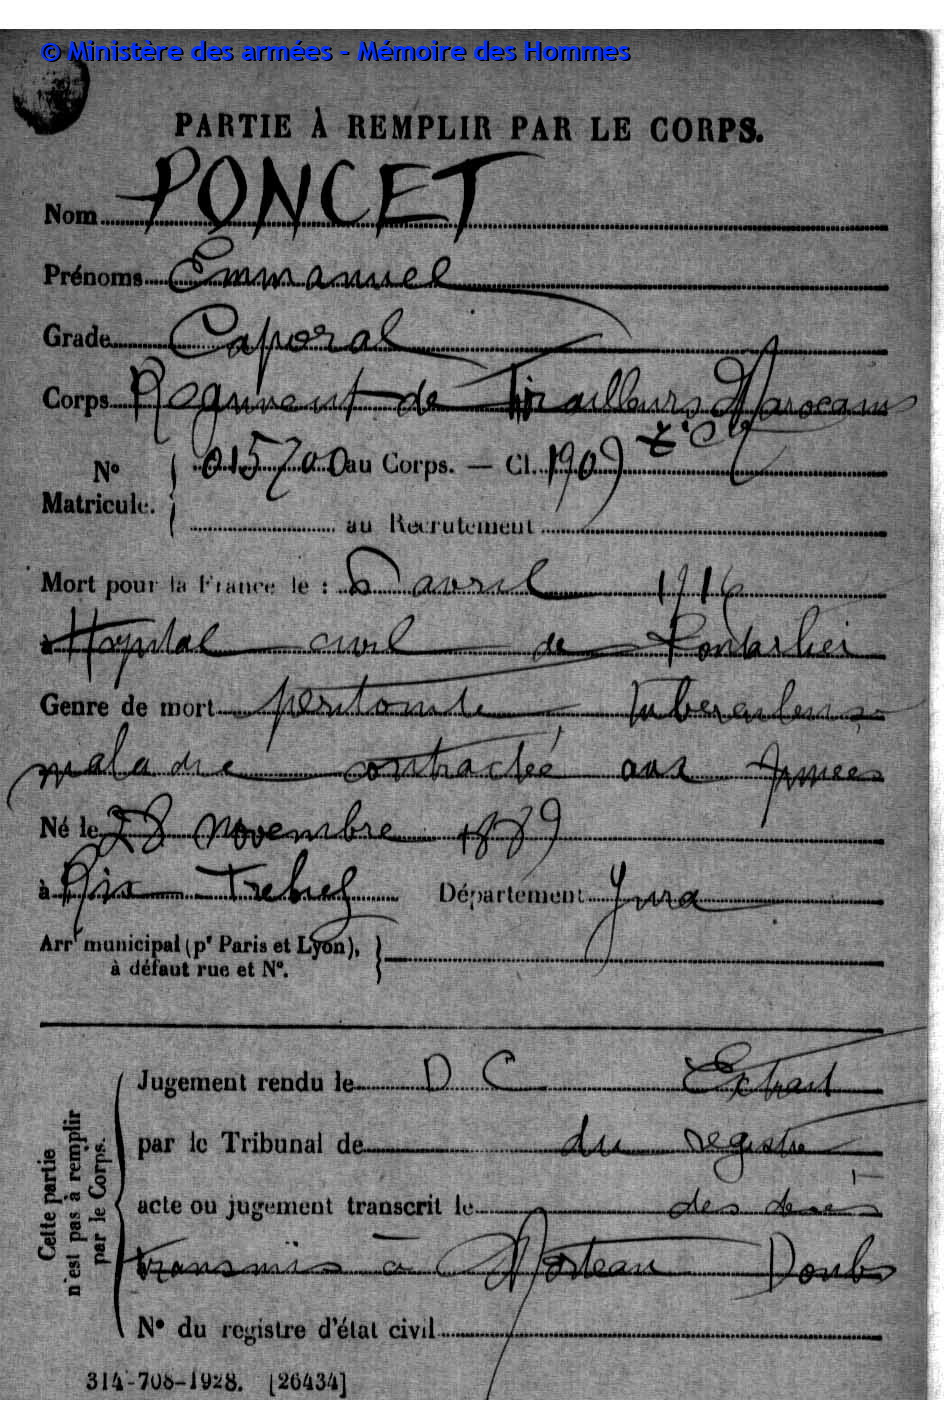 © Ministère des armées - Mémoire des Hommes
PARTIE À REMPLIR PAR LE CORPS.
Nom PONCET
Prénoms Emmanuel
Grade Caporal
Corps Régiment de Tirailleurs Marocains
N° Matricule. 015700 au Corps. — Cl. 1909
au Recrutement
Mort pour la France le : avril 1916
à Hopital civil de Pontarlier
Genre de mort péritonite tuberculeuse
maladie contractée aux Armées
Né le 28 novembre 1889
à Rix Trebief Département Jura
Arrt municipal (pr Paris et Lyon),
à défaut rue et N°.
Cette partie n'est pas à remplir par le Corps.
Jugement rendu le D C Extrait
par le Tribunal de du registre
acte ou jugement transcrit le des décès
transmis à Morteau Doubs
N° du registre d'état civil
314-708-1928. [26434]